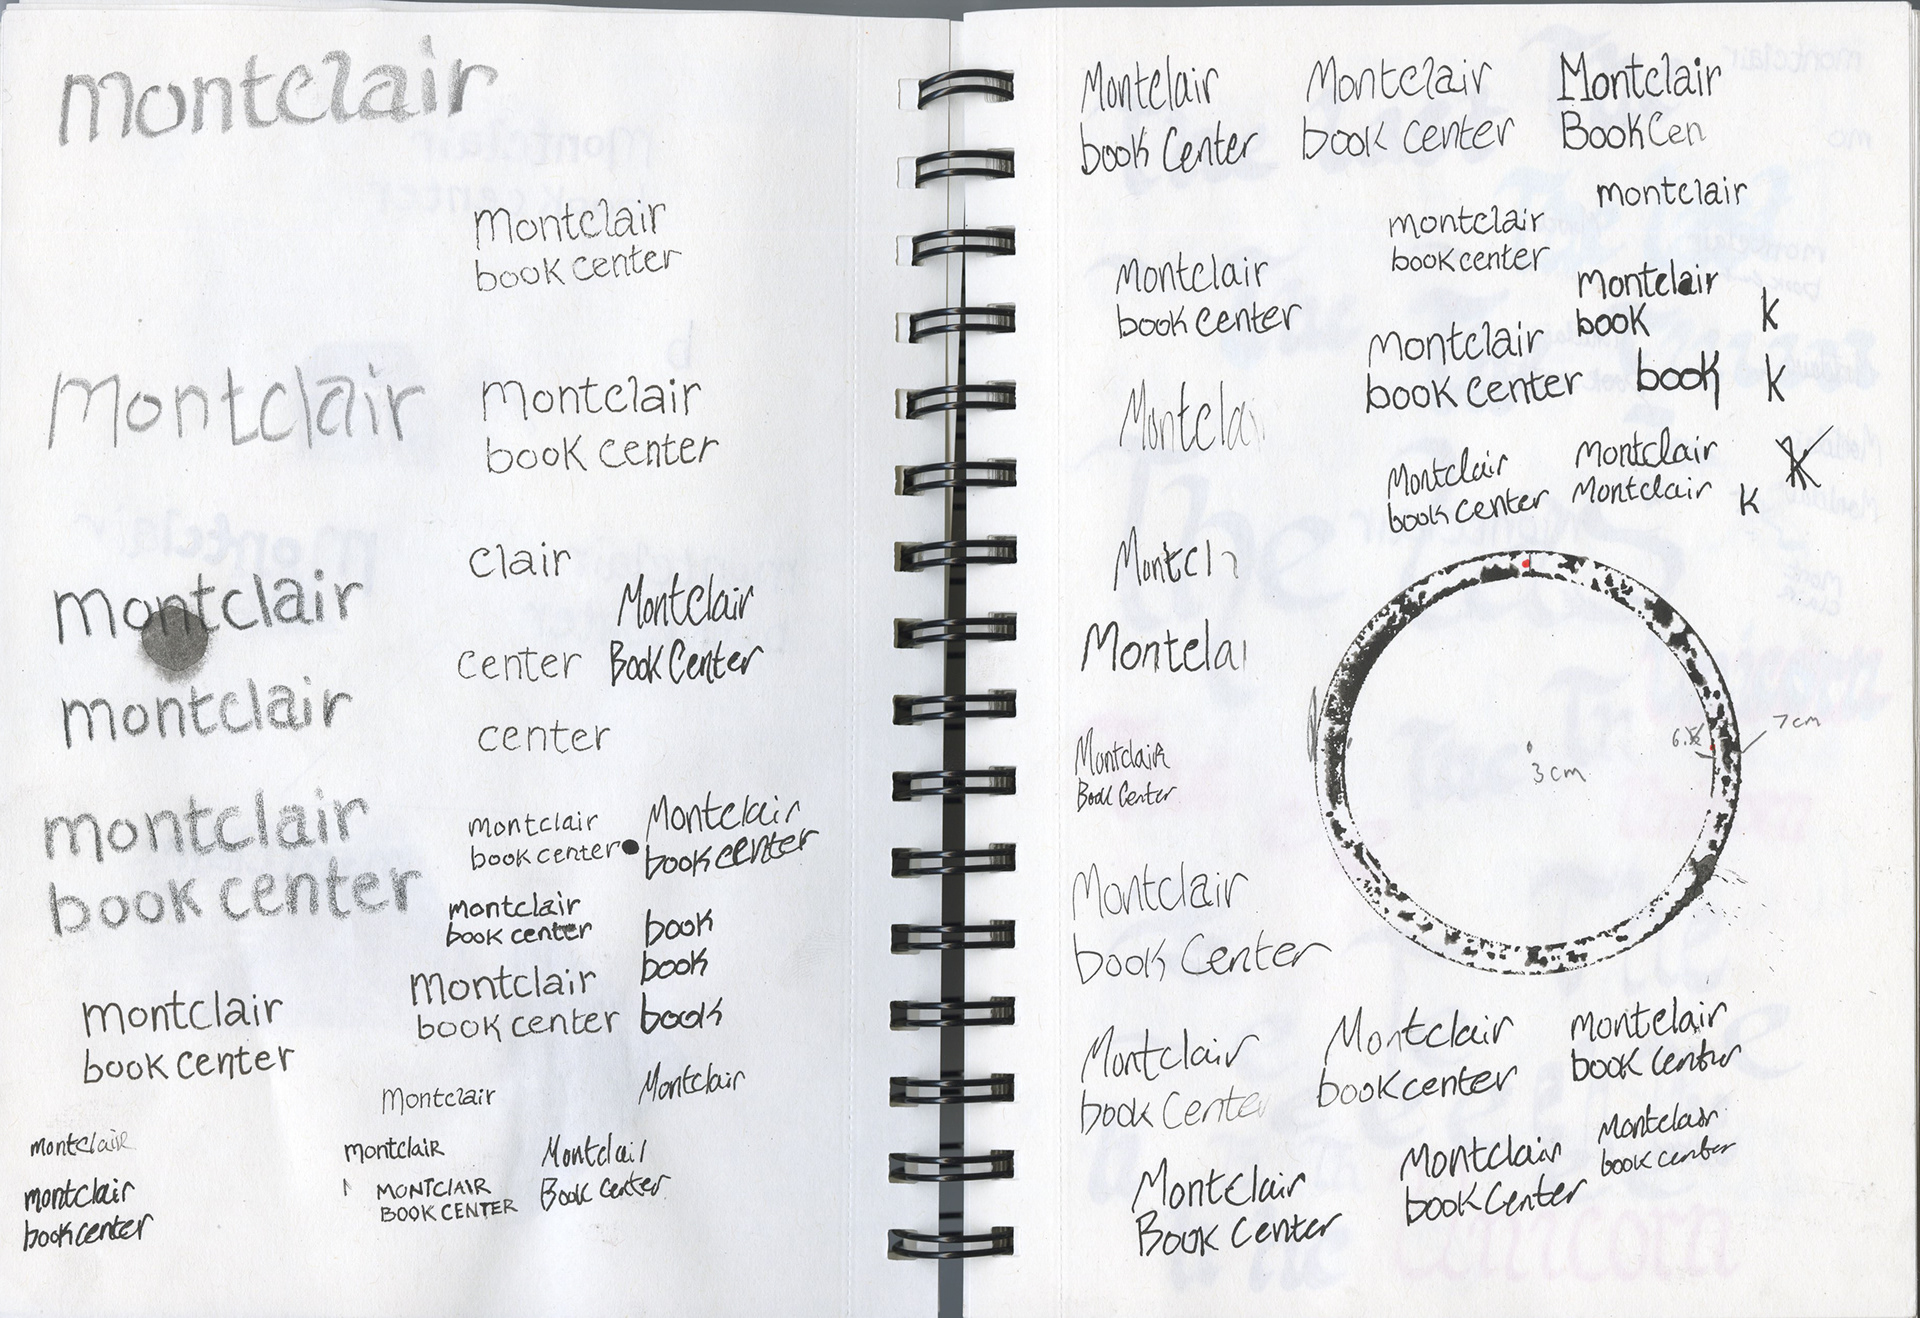 montclair
Montclair
book center
Montclair
Montclair
book center
clair
montclair
Montclair
Book Center
center
montclair
center
montclair
book center
montclair
book center
Montclair
book center
montclair
book center
book
book
Montclair
book center
book
montclair
book center
Montclair
Montclair
montclair
montclair
Montclair
Book Center
MONTCLAIR
BOOK CENTER
montclair
book center
Montclair
book Center
Montclair
book center
Montclair
Book Cen
montclair
montclair
book center
Montclair
book center
Montclair
book
k
Montclair
book center
book
k
Montclai
Montclair
book center
Montclair
Montclair
k
k
Montcl
Montclai
7cm
3cm
Montclair
Book Center
Montclair
book Center
Montclair
book Center
Montclair
book center
Montclair
book center
Montclair
Book Center
Montclair
book Center
Montclair
book center